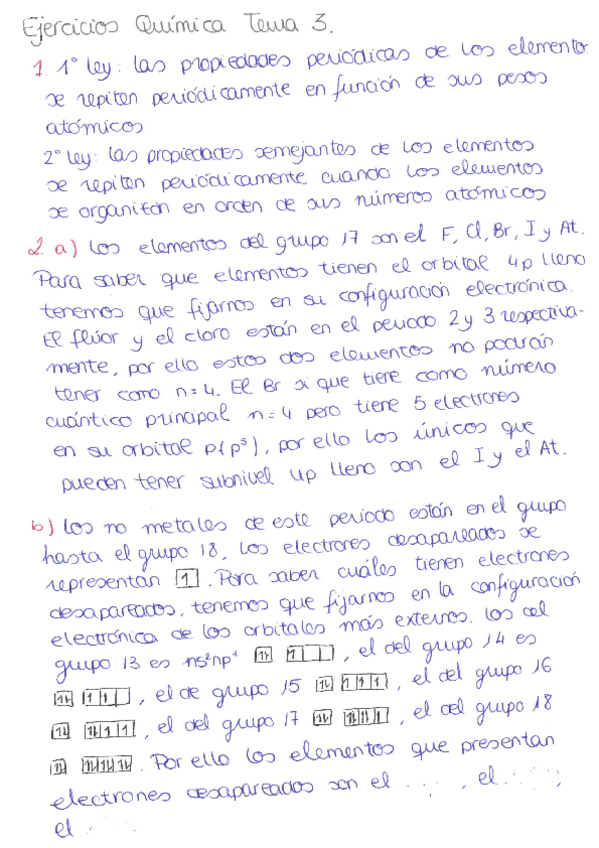 Ejercicios Química Tema 3.
1. 1ª ley: las propiedades periódicas de los elemento
se repiten periódicamente en función de sus pesos
atómicos
2ª ley: las propiedades semejantes de los elementos
se repiten periódicamente cuando los elementos
se organizan en orden de sus números atómicos
2. a) los elementos del grupo 17 son el F, Cl, Br, I y At.
Para saber que elementos tienen el orbital 4p lleno
tenemos que fijarnos en su configuración electrónica.
El flúor y el cloro están en el periodo 2 y 3 respectiva-
mente, por ello estos dos elementos no podrán
tener como n=4. El Br si que tiene como número
cuántico principal n=4 pero tiene 5 electrones
en su orbital p(p⁵), por ello los únicos que
pueden tener subnivel 4p lleno son el I y el At.
b) los no metales de este periodo están en el grupo
hasta el grupo 18, los electrones desapareados se
representan 1. Para saber cuáles tienen electrones
desapareados, tenemos que fijarnos en la configuración
electrónica de los orbitales más externos. los del
grupo 13 es ns²np¹ 1l 1, el del grupo 14 es
1l 1 1, el de grupo 15 1l 1 1 1, el del grupo 16
1l 1l 1 1, el del grupo 17 1l 1l 1l 1, el del grupo 18
1l 1l 1l 1l. Por ello los elementos que presentan
electrones desapareados son el , el ,
el